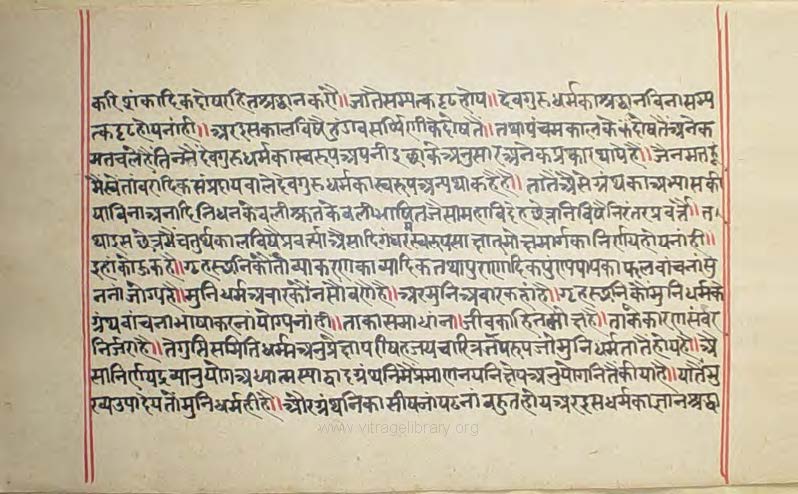 करि शंकादिकदोषरहितश्रद्धानकरौ॥जातैसम्यत्कदृढहोय॥देवगुरुधर्मकाश्रद्धानविनासम्य
त्कदृढहोयनांही॥अरइसकालविषैहुंडावसर्प्पिणीकेदोषतै॥तथापंचमकालकेदोषतैंअनेक
मतचलेहैंतिननैंदेवगुरुधर्मकास्वरूपअपनीइछाकेअनुसारअनेकप्रकारथापेहै॥जैनमतहू
मैंस्वेतांवरादिकसंप्रदायवालेदेवगुरुधर्मकास्वरूपअन्यथाकहैहै॥तातैंअैसेग्रंथकाअभ्यासकी
याविनाअनादिनिधनकेवलीश्रुतकेवलीभाषितजैसामहाविदेहछेत्रनिविषैनिरंतरप्रवर्त्तै॥त
थाइसछेत्रमैंचतुर्थकालविषैप्रवर्त्याअैसादिगंबरस्वरूपसाक्षातमोक्षमार्गकानिर्णयहोयनांही॥
इहांकोऊकहै॥गृहस्थनिकौंतौव्याकरणकाव्यादिकतथापुराणादिकपुण्यपापकाफलवांचनांसु
ननांजोग्यहै॥मुनिधर्मअवारकौंनसौवणैहै॥अरमुनिअवारकहांहै॥गृहस्थनिकौंमुनिधर्मके
ग्रंथवांचनाभाषाकरनांयोग्यनांही॥ताकासमाधांन॥जीवकाहिततौमोक्षहै॥ताकेकारणसंवर
निर्जराहै॥तेगुप्तिसमितिधर्मअनुप्रेक्षापरीषहजयचारित्रतपरूपजोमुनिधर्मतातैहोयहै॥अै
सानिर्णयद्रव्यानुयोगअध्यात्मस्याद्वादग्रंथनिमैप्रमाणनयनिक्षेपअनुयोगनितैकीयाहै॥यातैंमु
ख्यउपादेयतौमुनिधर्महीहै॥औरग्रंथनिकासीषनांपढनांबहुतहोयअरइसधर्मकाज्ञानश्रद्धा
www.vitragelibrary.org